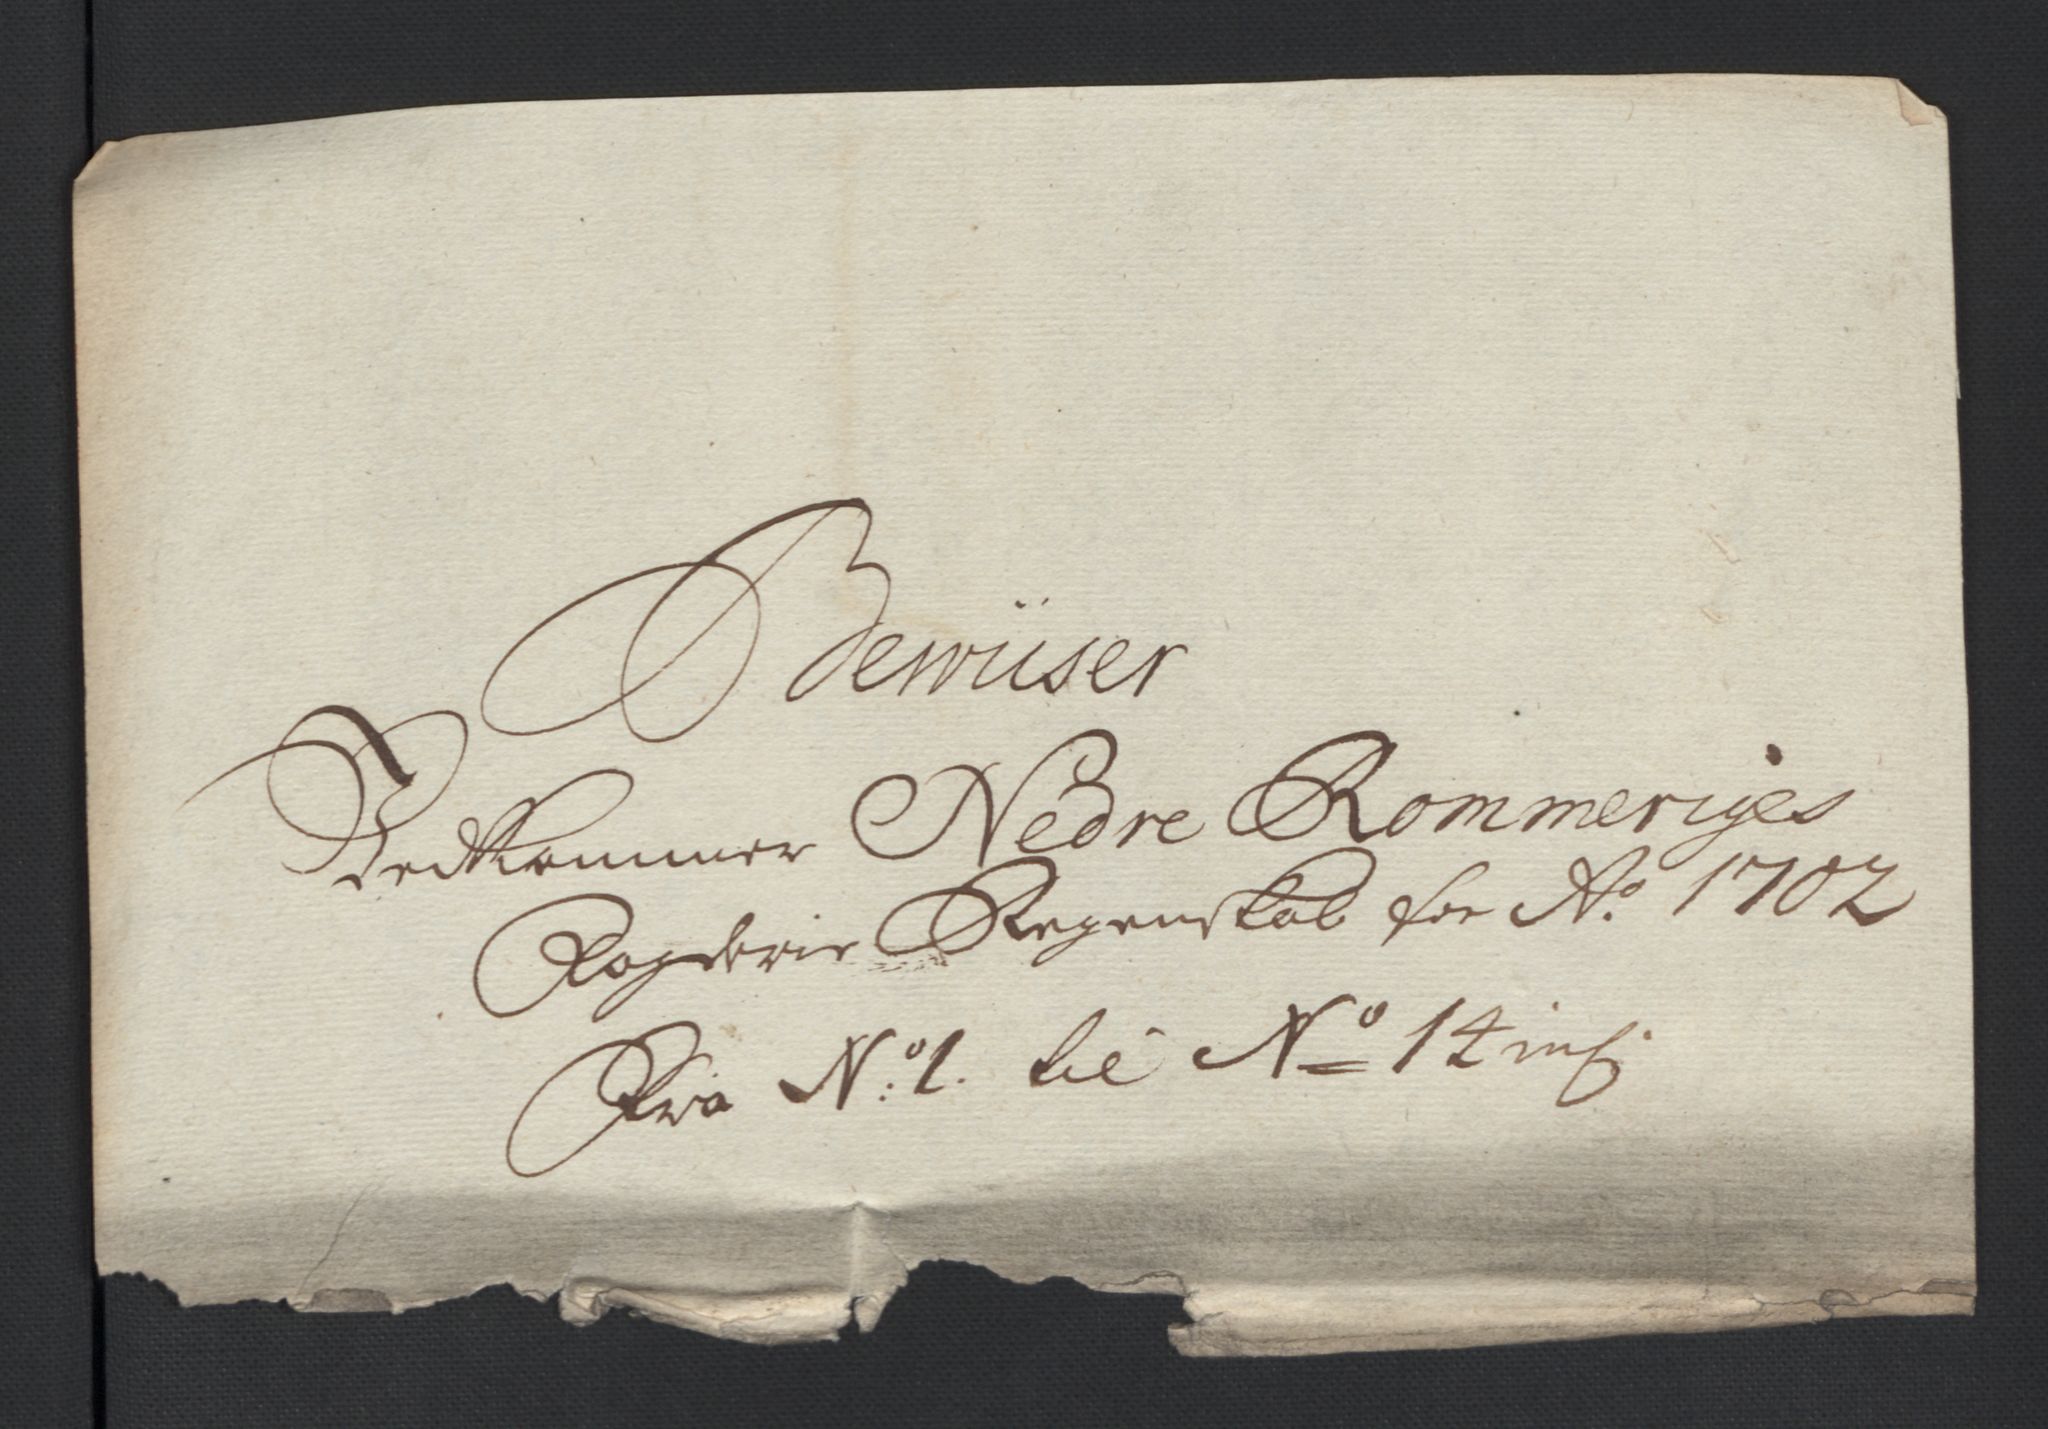 Bewiiser
Vedkommer Nedre Rommeriges
Fogderie Regenskab for Ao. 1702
Fra No. 1. til No 14 incl: